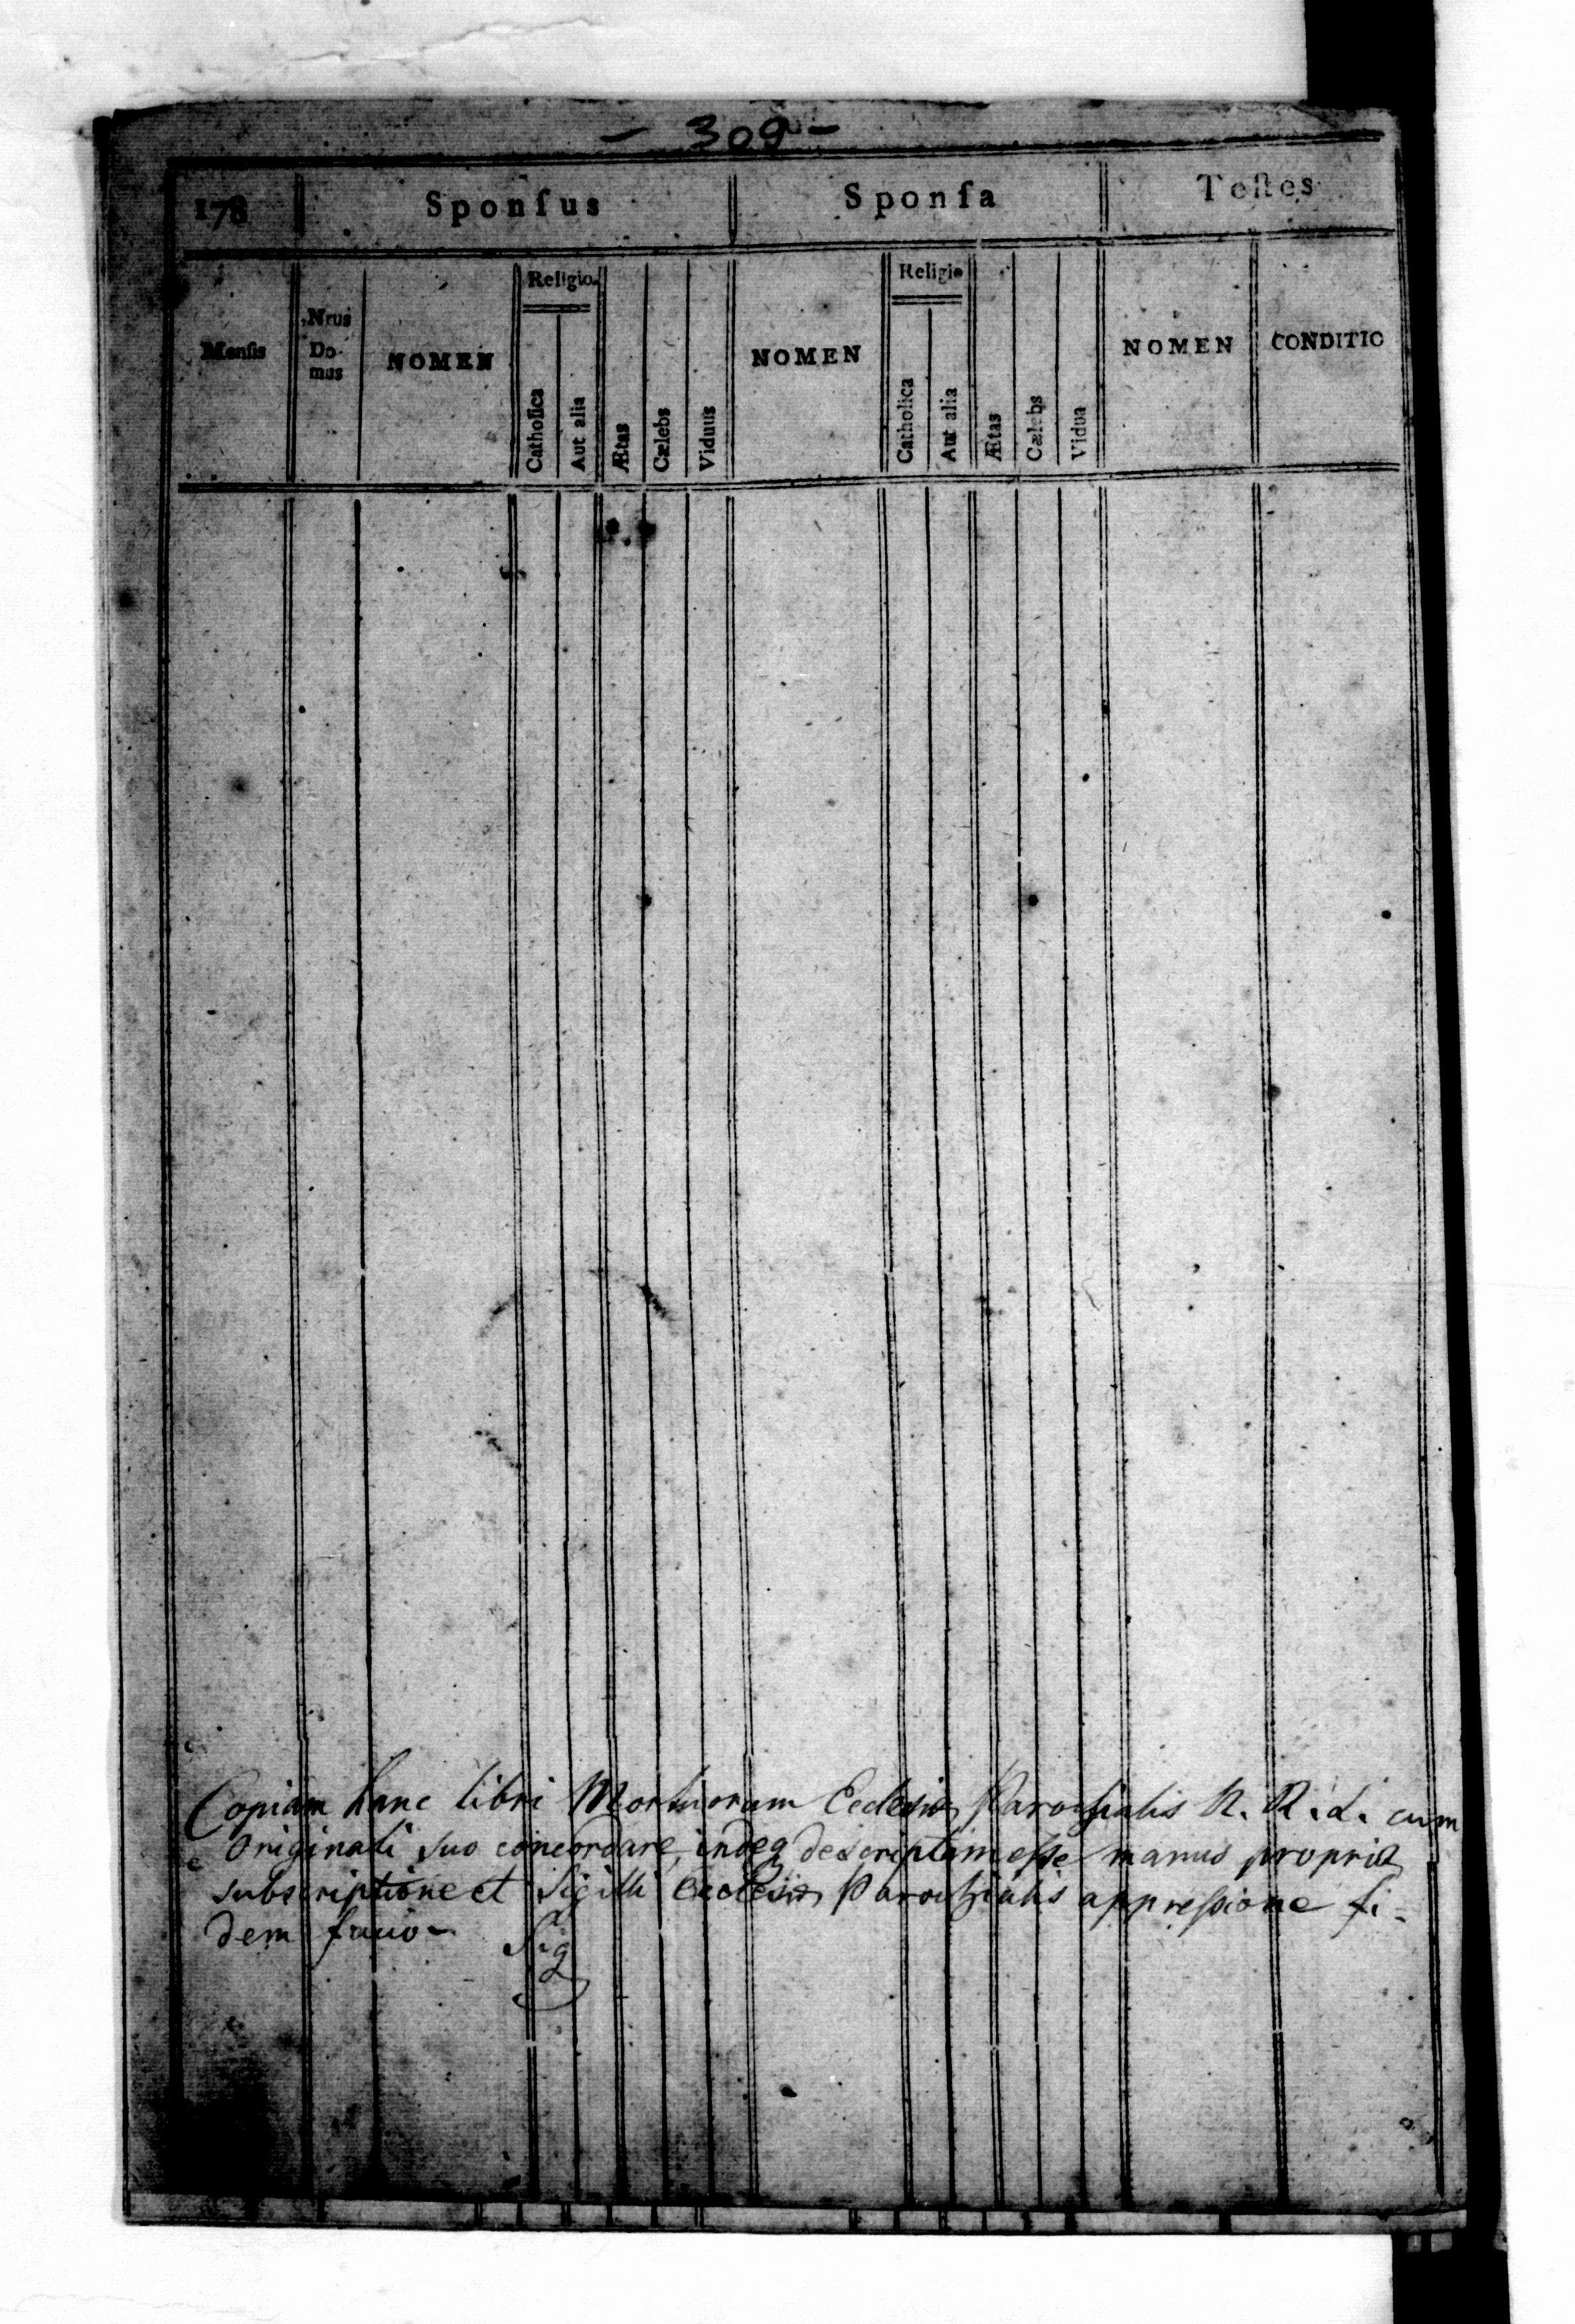 - 309 -
178 Sponſus Sponſa Teſtes
Menſis Nrus Do- mus NOMEN Religio. Catholica Aut alia Ætas Cælebs Viduus NOMEN Religio Catholica Aut alia Ætas Cælebs Vidua NOMEN CONDITIO
Copiam hanc libri Mortuorum Ecclesiæ Parochialis R. R. L. cum
Originali suo concordare, indeq descriptam eſse manus propriæ
subscriptione et Sigilli Ecclesiæ Parochialis appreſsione fi-
dem facio
Sig